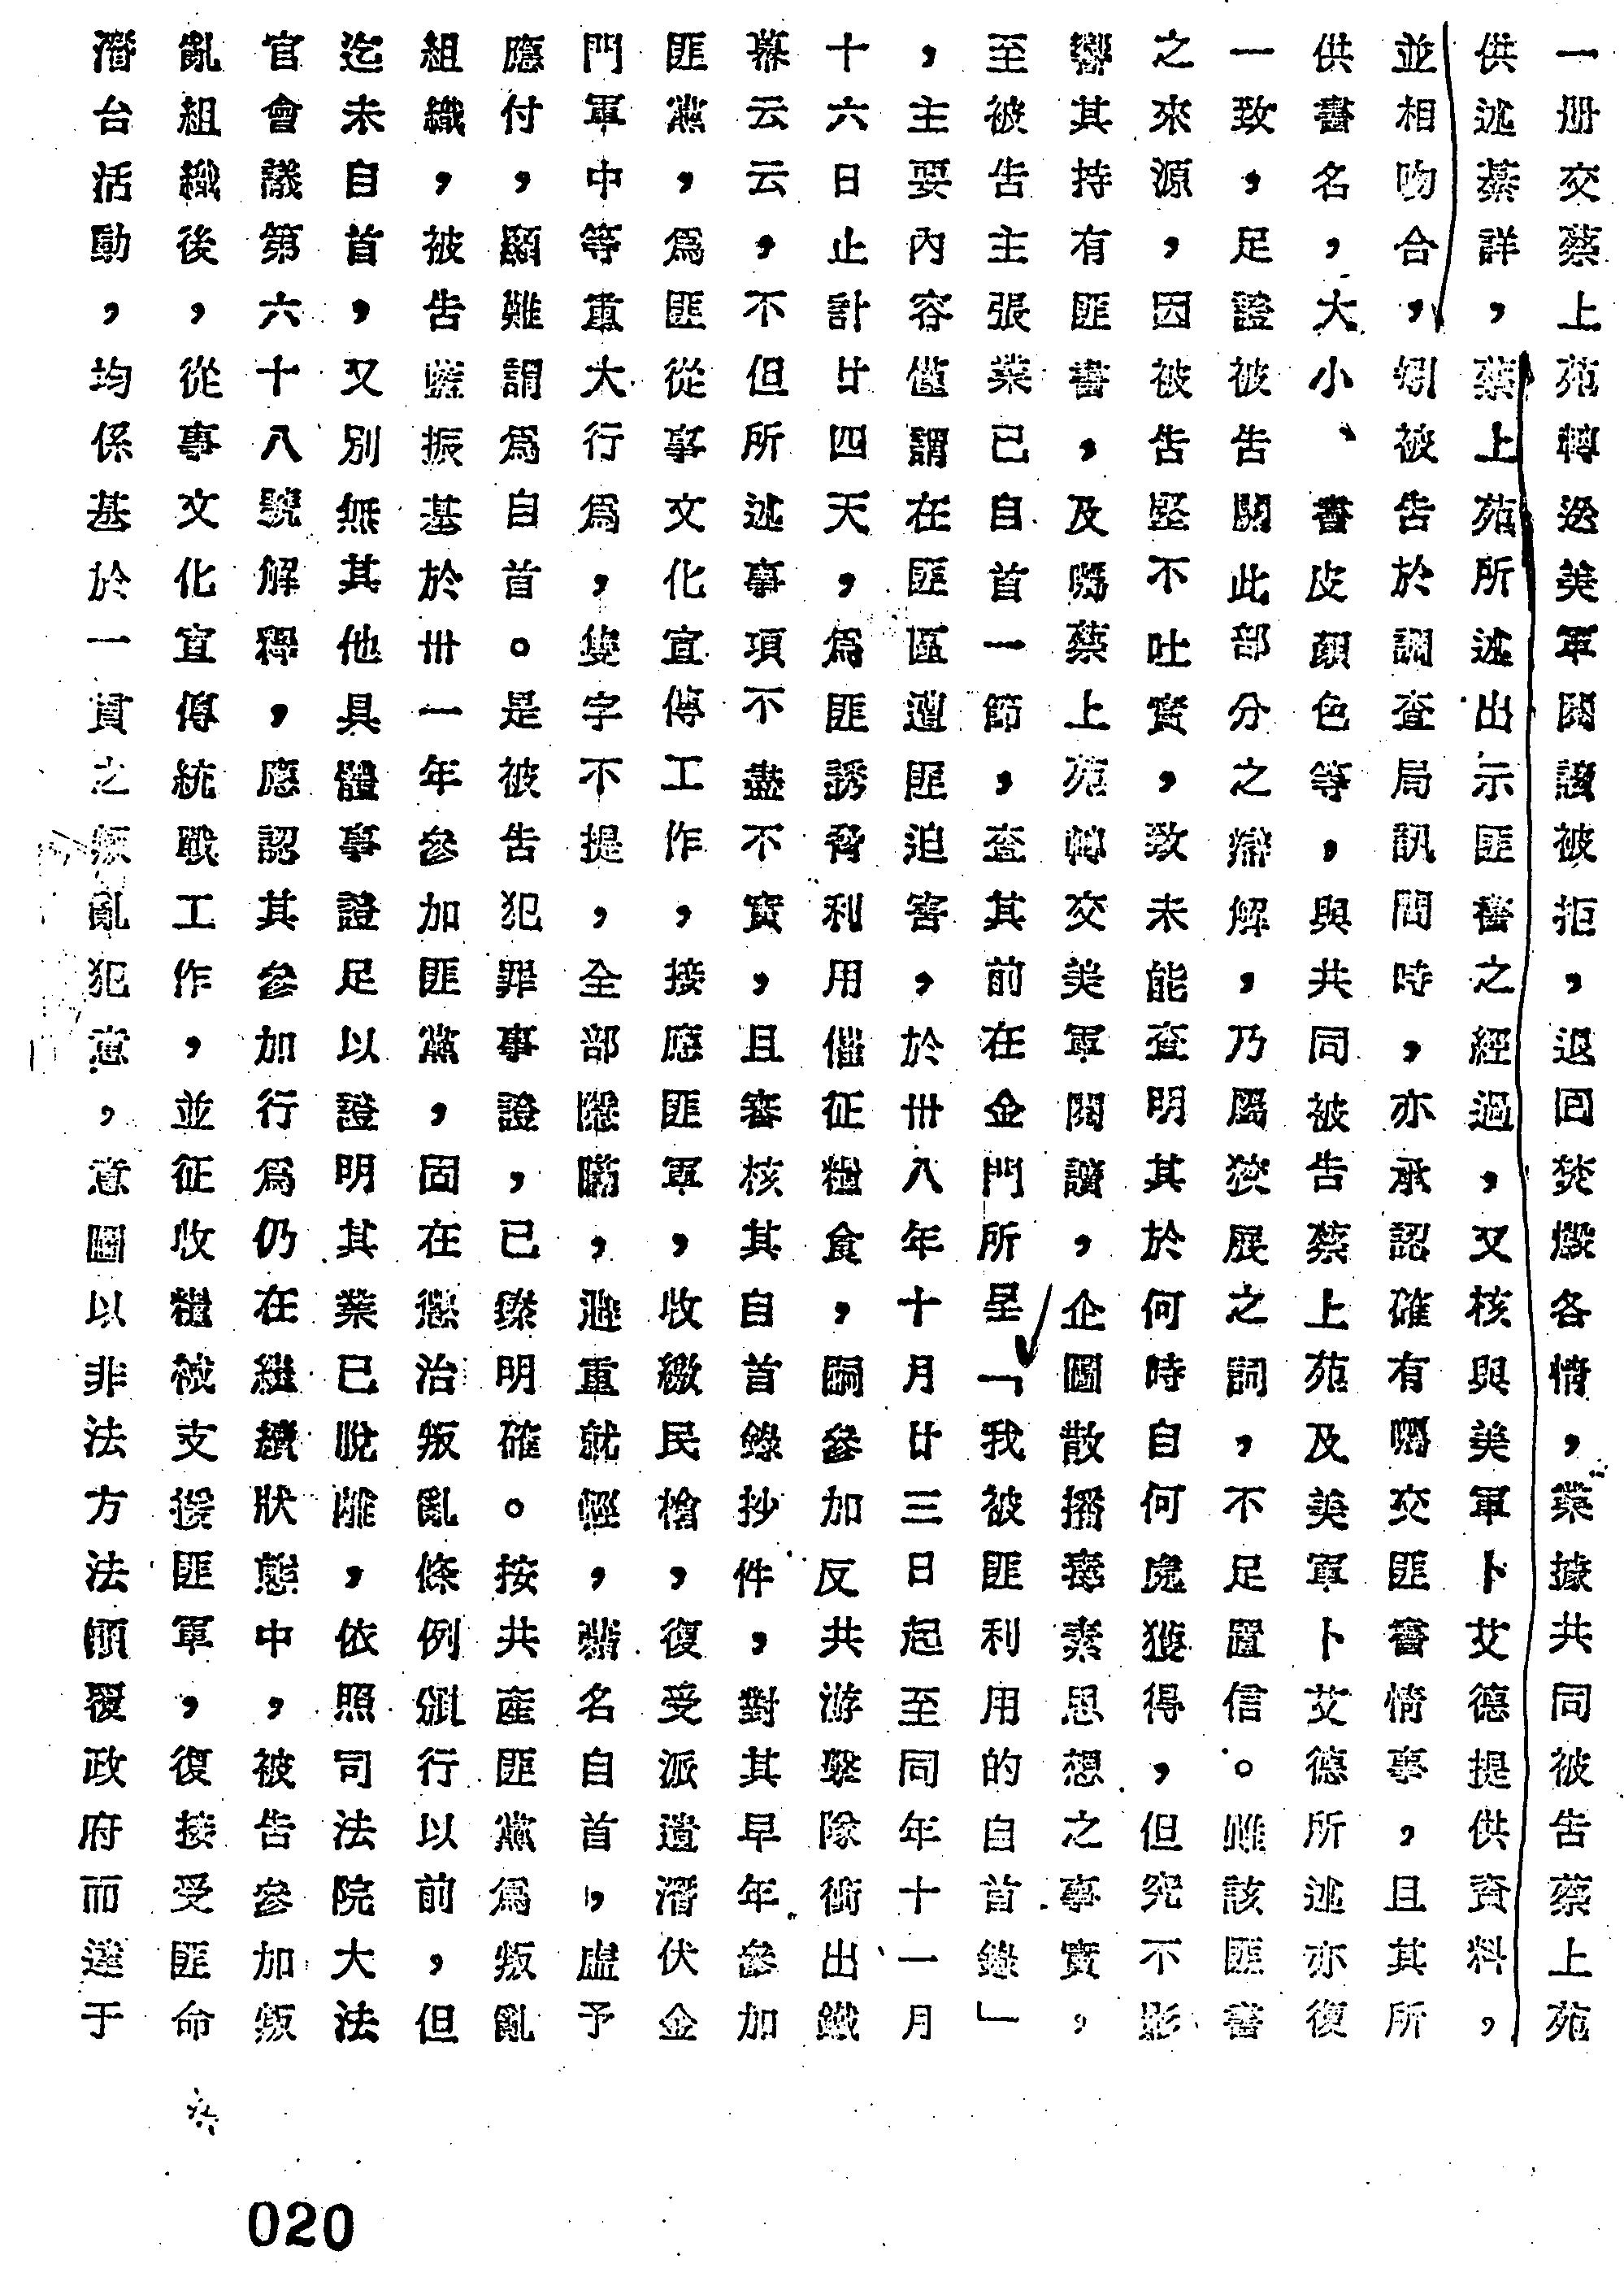 一册交蔡上苑轉送美軍閱讀被拒，退回焚燬各情，業據共同被告蔡上苑
供述綦詳，蔡上苑所述出示匪書之經過，又核與美軍卜艾德提供資料，
並相吻合，矧被告於調查局訊問時，亦承認確有囑交匪書情事，且其所
供書名，大小、書皮顏色等，與共同被告蔡上苑及美軍卜艾德所述亦復
一致，足證被告關此部分之辯解，乃屬狡展之詞，不足置信。雖該匪書
之來源，因被告堅不吐實，致未能查明其於何時自何處獲得，但究不影
響其持有匪書，及囑蔡上苑轉交美軍閱讀，企圖散播毒素思想之事實，
至被告主張業已自首一節，查其前在金門所呈「我被匪利用的自首錄」
，主要內容僅謂在匪區遭匪迫害，於卅八年十月廿三日起至同年十一月
十六日止計廿四天，為匪誘脅利用，催征糧食，嗣參加反共游擊隊衝出鐵
幕云云，不但所述事項不盡不實，且審核其自首錄抄件，對其早年參加
匪黨，為匪從事文化宣傳工作，接應匪軍，收繳民槍，復受派遣潛伏金
門軍中等重大行為，隻字不提，全部隱瞞，避重就輕，藉名自首，虛予
應付，顯難謂為自首。是被告犯罪事證，已臻明確。按共產匪黨為叛亂
組織，被告踮振基於卅一年參加匪黨，固在懲治叛亂條例頒行以前，但
迄未自首，又別無其他具體事證足以證明其業已脫離，依照司法院大法
官會議第六十八號解釋，應認其參加行為仍在繼續狀態中，被告參加叛
亂組織後，從事文化宣傳統戰工作，並征收糧秣支援匪軍，復接受匪命
潛台活動，均係基於一貫之叛亂犯意，意圖以非法方法顛覆政府而達于
020